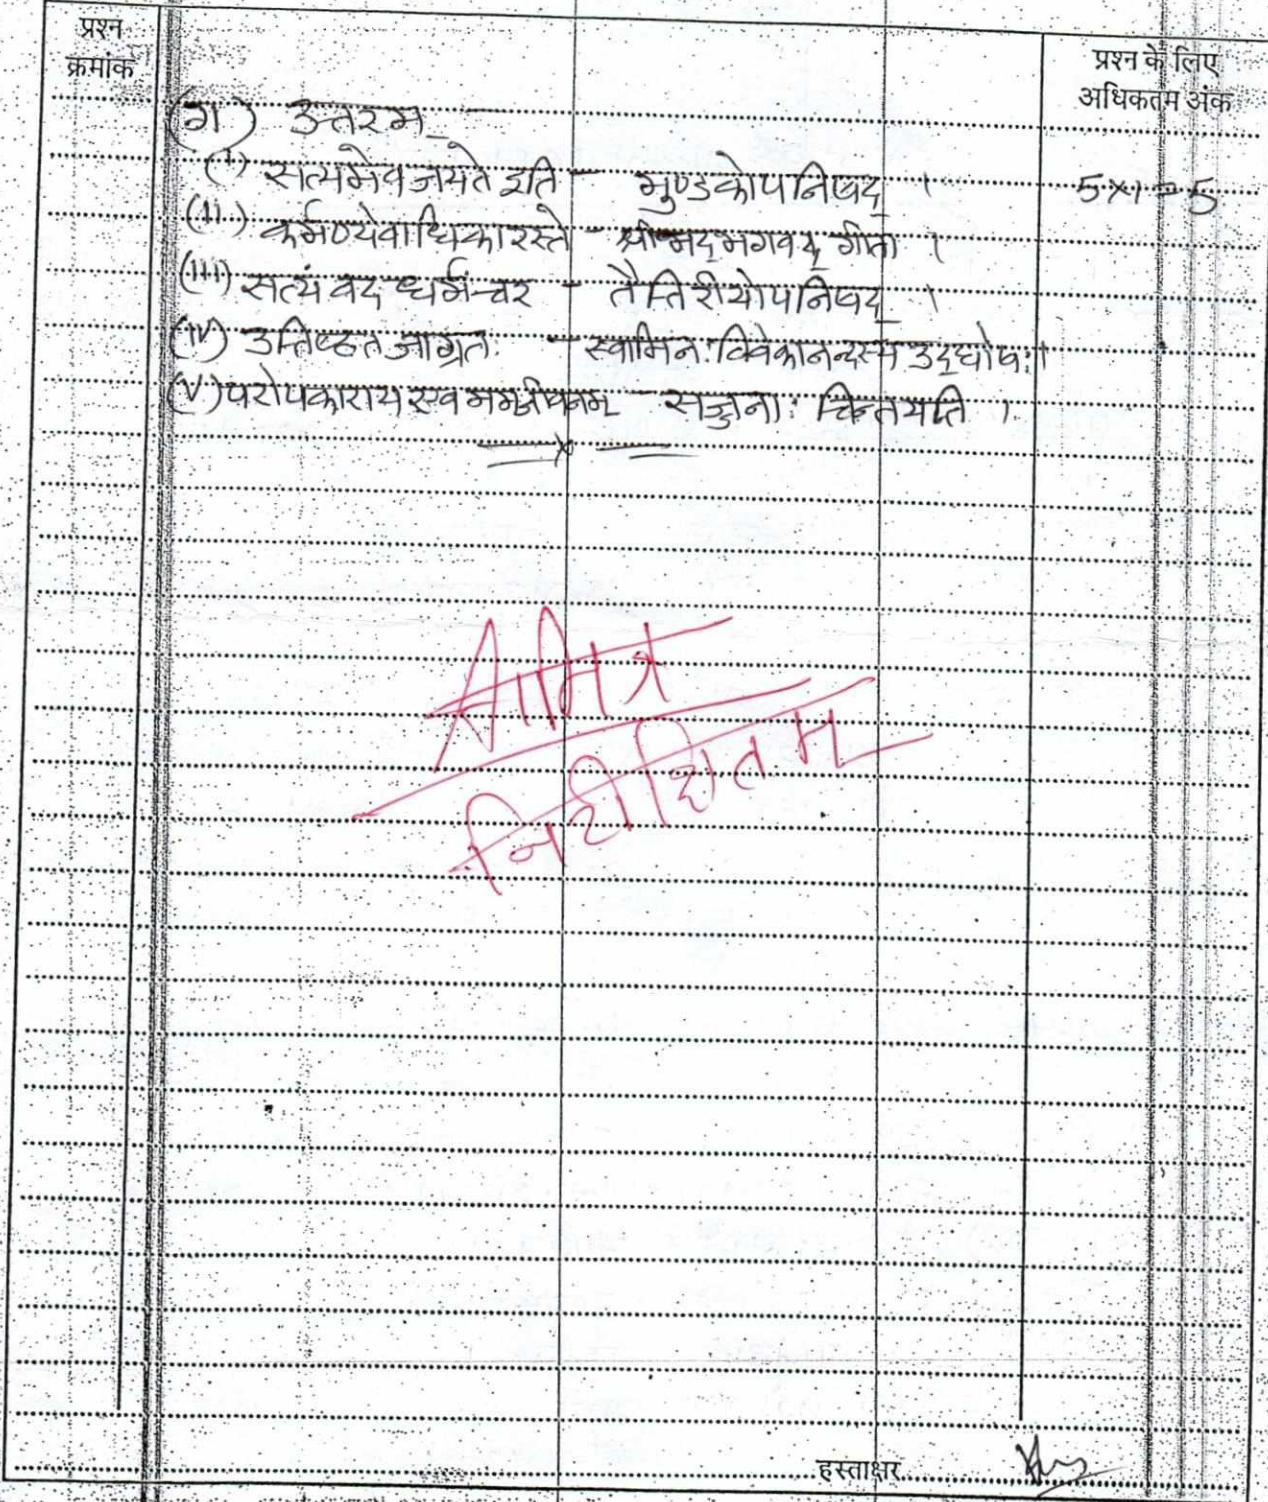 प्रश्न
क्रमांक
प्रश्न के लिए
अधिकतम अंक
(ग) उत्तरम्
(i) सत्यमेव जयते इति - मुण्डकोपनिषद् ।
5×1=5
(ii) कर्मण्येवाधिकारस्ते - श्रीमद्भगवद् गीता ।
(iii) सत्यं वद धर्मं चर - तैत्तिरीयोपनिषद् ।
(iv) उत्तिष्ठत जाग्रत: - स्वामिन: विवेकानन्दस्य उद्घोष: ।
(v) परोपकाराय एव मम जीवनम् - सज्जना: चिन्तयति ।
निरीक्षितम्
हस्ताक्षर